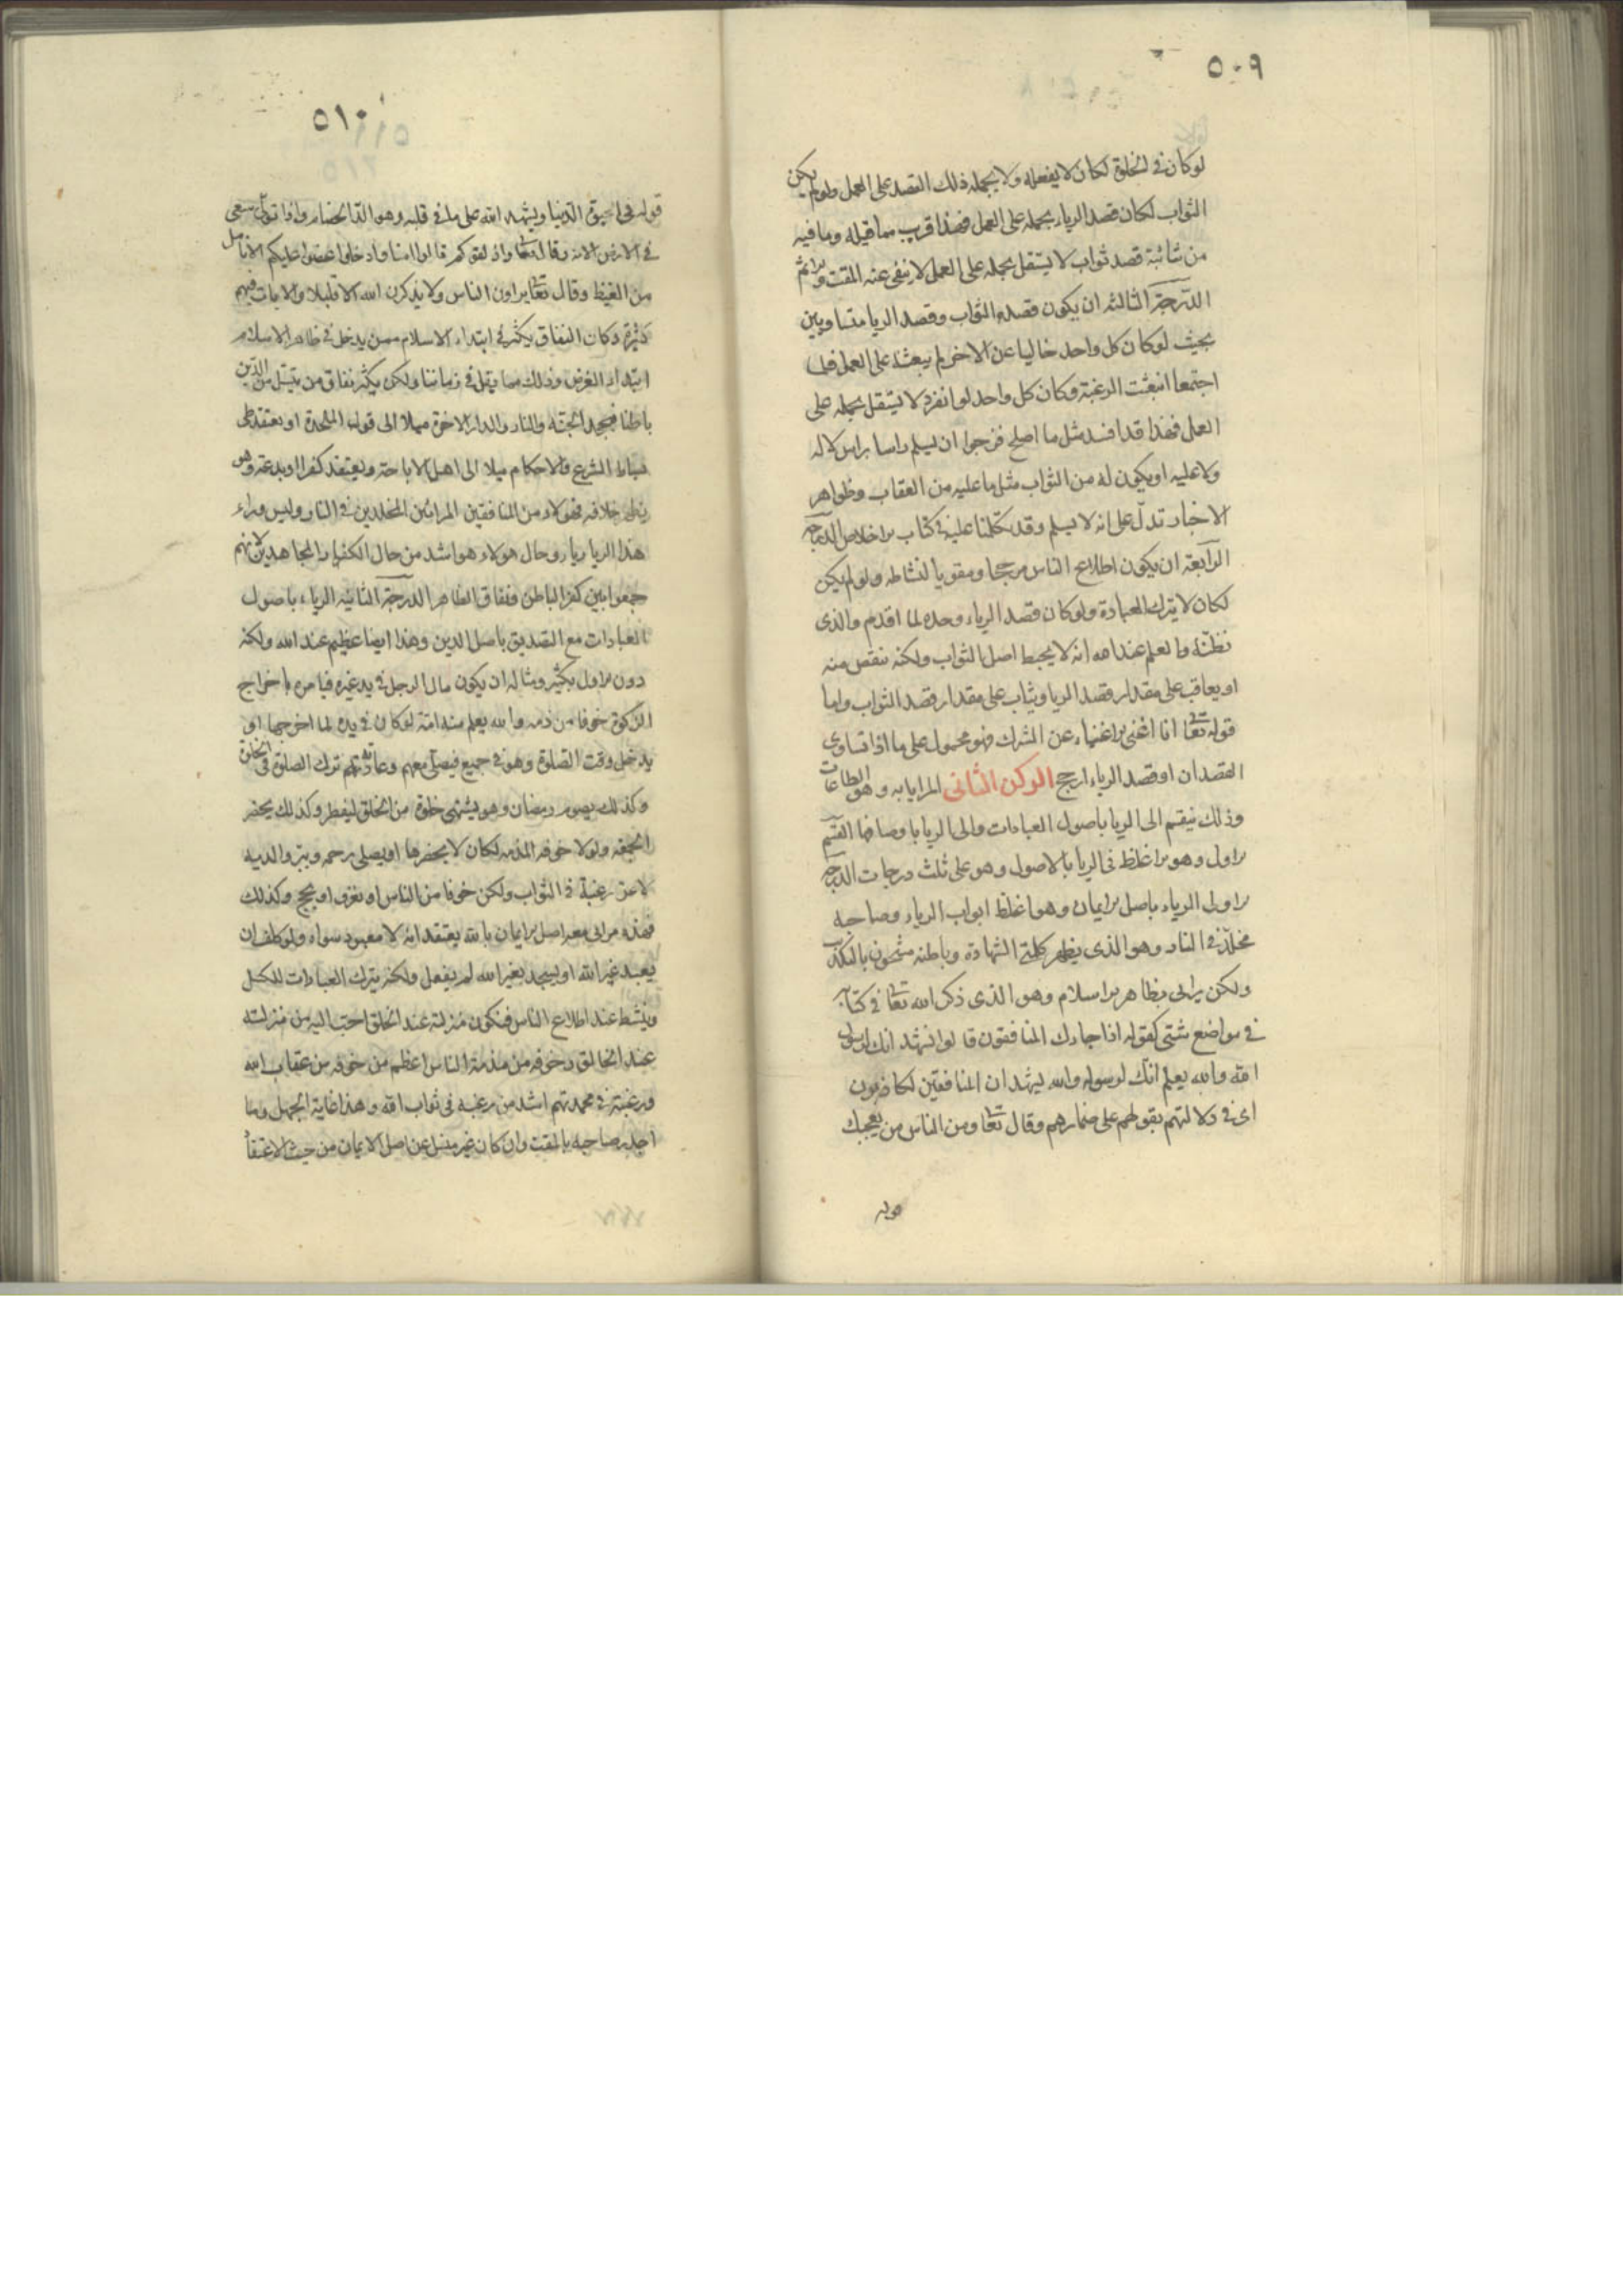 ٥٠٩
لو كان فى الخلوة لكان لا يفعله ولا يحمله ذلك القصد على العمل ولو لم يكن
الثواب لكان قصد الرياء يحمله على العمل فهذا قريب مما قبله وما فيه
من شائبة قصد ثواب لا يستقل بحمله على العمل لا ينفى عنه المقت والاثم
الدرجة الثالثه ان يكون قصد الثواب وقصد الريا متساويين
بحيث لو كان كل واحد خاليا عن الاخر لم يبعثه على العمل فلما
اجتمعا انبعثت الرغبة وكان كل واحد لو انفرد لا يستقل بحمله على
العمل فهذا قد افسد مثل ما اصلح فنرجوا ان يسلم راسا براس لا له
ولا عليه او يكون له من الثواب مثل ما عليه من العقاب وظواهر
الاخبار تدل على انه لا يسلم وقد تكلمنا عليه فى كتاب الاخلاص الدرجة
الرابعة ان يكون اطلاع الناس مرجحا ومقويا لنشاطه ولو لم يكن
لكان لا يترك العبادة ولو كان قصد الرياء وحده لما اقدم والذى
نظنه والعلم عند الله انه لا يحبط اصل الثواب ولكنه ينقص منه
او يعاقب على مقدار قصد الريا ويثاب على مقدار قصد الثواب واما
قوله تعا انا اغنى الاغنياء عن الشرك فهو محمول على ما اذا تساوى
القصدان او قصد الرياء ارجح الركن الثانى المرايا به وهو الطاعات
وذلك ينقسم الى الريا باصول العبادات والى الريا باوصافها القسم
الاول وهو الاغلظ فى الريا بالاصول وهو على ثلث درجات الدرجة
الاولى الرياء باصل الايمان وهو اغلظ ابواب الرياء وصاحبه
مخلد فى النار وهو الذى يظهر كلمة الشهادة وباطنه مشحون بالتكذيب
ولكن يرائى بظاهر الاسلام وهو الذى ذكر الله تعا فى كتابه
فى مواضع شتى كقوله اذا جاءك المنافقون قالوا نشهد انك لرسول
الله والله يعلم انك لرسوله والله يشهد ان المنافقين لكاذبون
اى فى دلالتهم بقولهم على ضمائرهم وقال تعا ومن الناس من يعجبك
قوله
٥١٠
قوله فى الحيوة الدنيا ويشهد الله على ما فى قلبه وهو الد الخصام واذا تولى سعى
فى الارض الاية وقال تعا واذا لقوكم قالوا امنا واذا خلوا عضوا عليكم الانامل
من الغيظ وقال تعا يراون الناس ولا يذكرون الله الا قليلا والايات فيهم
كثيرة وكان النفاق يكثر فى ابتداء الاسلام ممن يدخل فى ظاهر الاسلام
ابتداء لغرض وذلك مما يقل فى زماننا ولكن يكثر نفاق من ينسل من الدين
باطنا فيجحد الجنة والنار والدار الاخرة ميلا الى قول الملحدة او يعتقد طى
بساط الشرع والاحكام ميلا الى اهل الاباحة ويعتقد كفرا او بدعة وهو
يظهر خلافه فهولاء من المنافقين المرائين المخلدين فى النار وليس وراء
هذا الريا رياء وحال هولاء هو اشد من حال الكفار المجاهدين لانهم
جمعوا بين كفر الباطن ونفاق الظاهر الدرجة الثانيه الرياء باصول
العبادات مع التصديق باصل الدين وهذا ايضا عظيم عند الله ولكنه
دون الاول بكثير ومثاله ان يكون مال الرجل فى يد غيره فيامره باخراج
الزكوة خوفا من ذمه والله يعلم منه انه لو كان فى يده لما اخرجها او
يدخل وقت الصلوة وهو فى جميع فيصلى معهم وعادته ترك الصلوة فى الخلوة
وكذلك يصوم رمضان وهو يشتهى خلوة من الخلق ليفطر وكذلك يحضر
الجمعة ولولا خوف المذمه لكان لا يحضرها او يصلى رحمه ويبر والديه
لا عن رغبة فى الثواب ولكن خوفا من الناس او يغزو او يحج وكذلك
فهذه مرائى معه اصل الايمان بالله يعتقد انه لا معبود سواه ولو كلف ان
يعبد غير الله او يسجد لغير الله لم يفعل ولكنه يترك العبادات للكسل
وينشط عند اطلاع الناس فيكون منزلته عند الخلق احب اليه من منزلته
عند الخالق وخوفه من مذمة الناس اعظم من خوفه من عقاب الله
ورغبته فى محمدتهم اشد من رغبته فى ثواب الله وهذا غاية الجهل وما
اجدر صاحبه بالمقت وان كان غير منسل عن اصل الايمان من حيث الاعتقاد